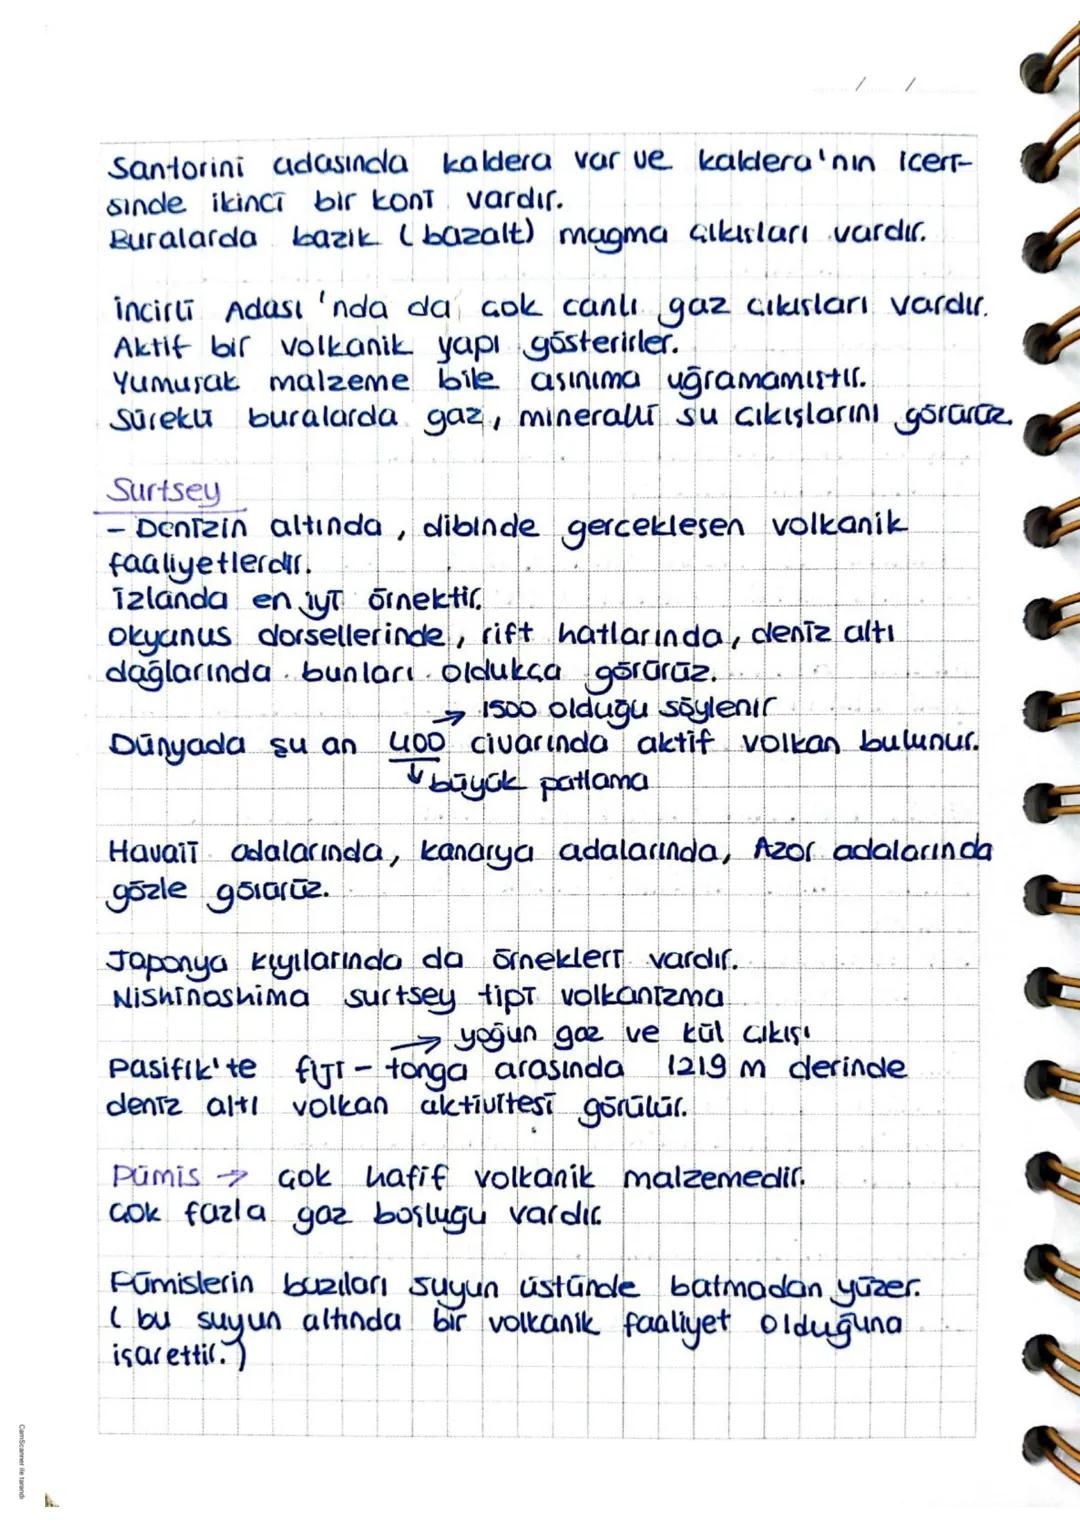 / /
Santorini adasında kaldera var ve kaldera'nın içeri-
sinde ikinci bir koni vardır.
Buralarda bazik (bazalt) magma çıkışları vardır.
İncirli Adası'nda da çok canlı gaz çıkışları vardır.
Aktif bir volkanik yapı gösterirler.
Yumuşak malzeme bile aşınıma uğramamıştır.
Sürekli buralarda gaz, mineralli su çıkışlarını görürüz.
Surtsey
- Denizin altında, dibinde gerçekleşen volkanik
faaliyetlerdir.
İzlanda en iyi örnektir.
Okyanus dorsellerinde, rift hatlarında, deniz altı
dağlarında bunları oldukça görürüz.
→ 1500 olduğu söylenir
Dünyada şu an 400 civarında aktif volkan bulunur.
↓ büyük patlama
Havaii adalarında, kanarya adalarında, Azor adalarında
gözle görürüz.
Japonya kıyılarında da örnekleri vardır.
Nishinoshima surtsey tipi volkanizma
→ yoğun gaz ve kül çıkışı
Pasifik'te fiji - tonga arasında 1219 m derinde
deniz altı volkan aktivitesi görülür.
Pümis → çok hafif volkanik malzemedir.
Çok fazla gaz boşluğu vardır.
Pümislerin bazıları suyun üstünde batmadan yüzer.
(bu suyun altında bir volkanik faaliyet olduğuna
işarettir.)
CamScanner ile tarandı